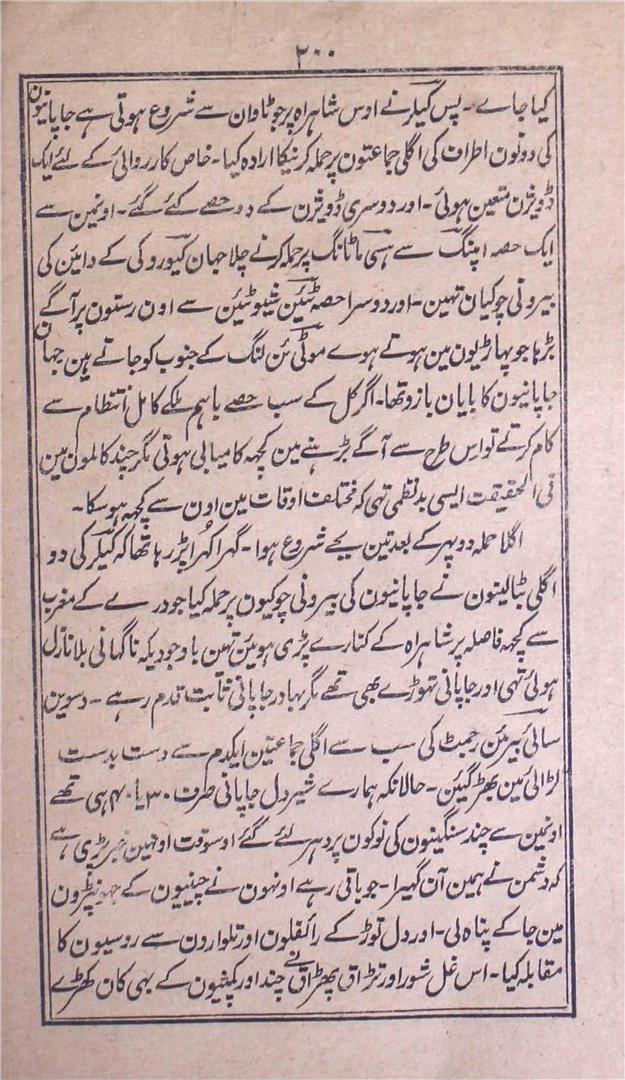 ۲۰۰
کیا جاے۔ پس کیلر نے اوس شاہراہ پر جو ٹاوان سے شروع ہوتی ہے جاپانیون
کی دونون اطراف کی اگلی جماعتون پر حملہ کرنیکا ارادہ کیا۔ خاص کارروائی کے لئے ایک
ڈویژن متعین ہوئی۔ اور دوسری ڈویژن کے دو حصے کئے گئے۔ اونمین سے
ایک حصہ اپنگ سے سی ماٹانگ پر حملہ کرنے چلا جہان کیوروکی کے دامئین کی
بیرونی چوکیان تہین۔ اور دوسرا حصہ ٹیئن شیوٹیئن سے اون رستون پر آگے
بڑہا جو پہاڑیون مین ہوتے ہوے موٹی ئن لنگ کے جنوب کو جاتے ہین جہان
جاپانیون کا بایان بازو تھا۔ اگر کل کے سب حصے باہم ملکے کامل انتظام سے
کام کرتے تو اس طرح سے آگے بڑہنے مین کچہہ کامیابی ہوتی مگر چند کالمون مین
فی الحقیقت ایسی بدنظمی تہی کہ مختلف اوقات مین اون سے کچہہ نہو سکا۔
اگلا حملہ دوپہر کے بعد تین بجے شروع ہوا۔ گہرا کہُرا پڑ رہا تھا کہ کیلر کی دو
اگلی بٹالینون نے جاپانیون کی بیرونی چوکیون پر حملہ کیا جو درے کے مغرب
سے کچہہ فاصلہ پر شاہراہ کے کنارے پڑی ہوئین تہین باوجودیکہ ناگہانی بلا نازل
ہوئی تہی اور جاپانی تہوڑے بھی تھے مگر بہادر جاپانی ثابت قدم رہے۔ دسوین
سائی بیرئن رجمٹ کی سب سے اگلی جماعتین ایکدم سے دست بدست
لڑائی مین بھڑ گیئن۔ حالانکہ ہمارے شیر دل جاپانی صرف ۳۰ یا ۴۰ ہی تھے
اونمین سے چند سنگینون کی نوکون پر دہر لئے گئے اوسوقت اونہین خبر پڑی ہے
کہ دشمن نے ہمین آن گھیرا۔ جو باقی رہے اونہون نے چینیون کے جہونپڑون
مین جا کے پناہ لی۔ اور دل توڑ کے رائفلون اور تلوارون سے روسیون کا
مقابلہ کیا۔ اس غل شور اور تڑاق پھڑاق نے چند اور کمپنیون کے بہی کان کھڑے